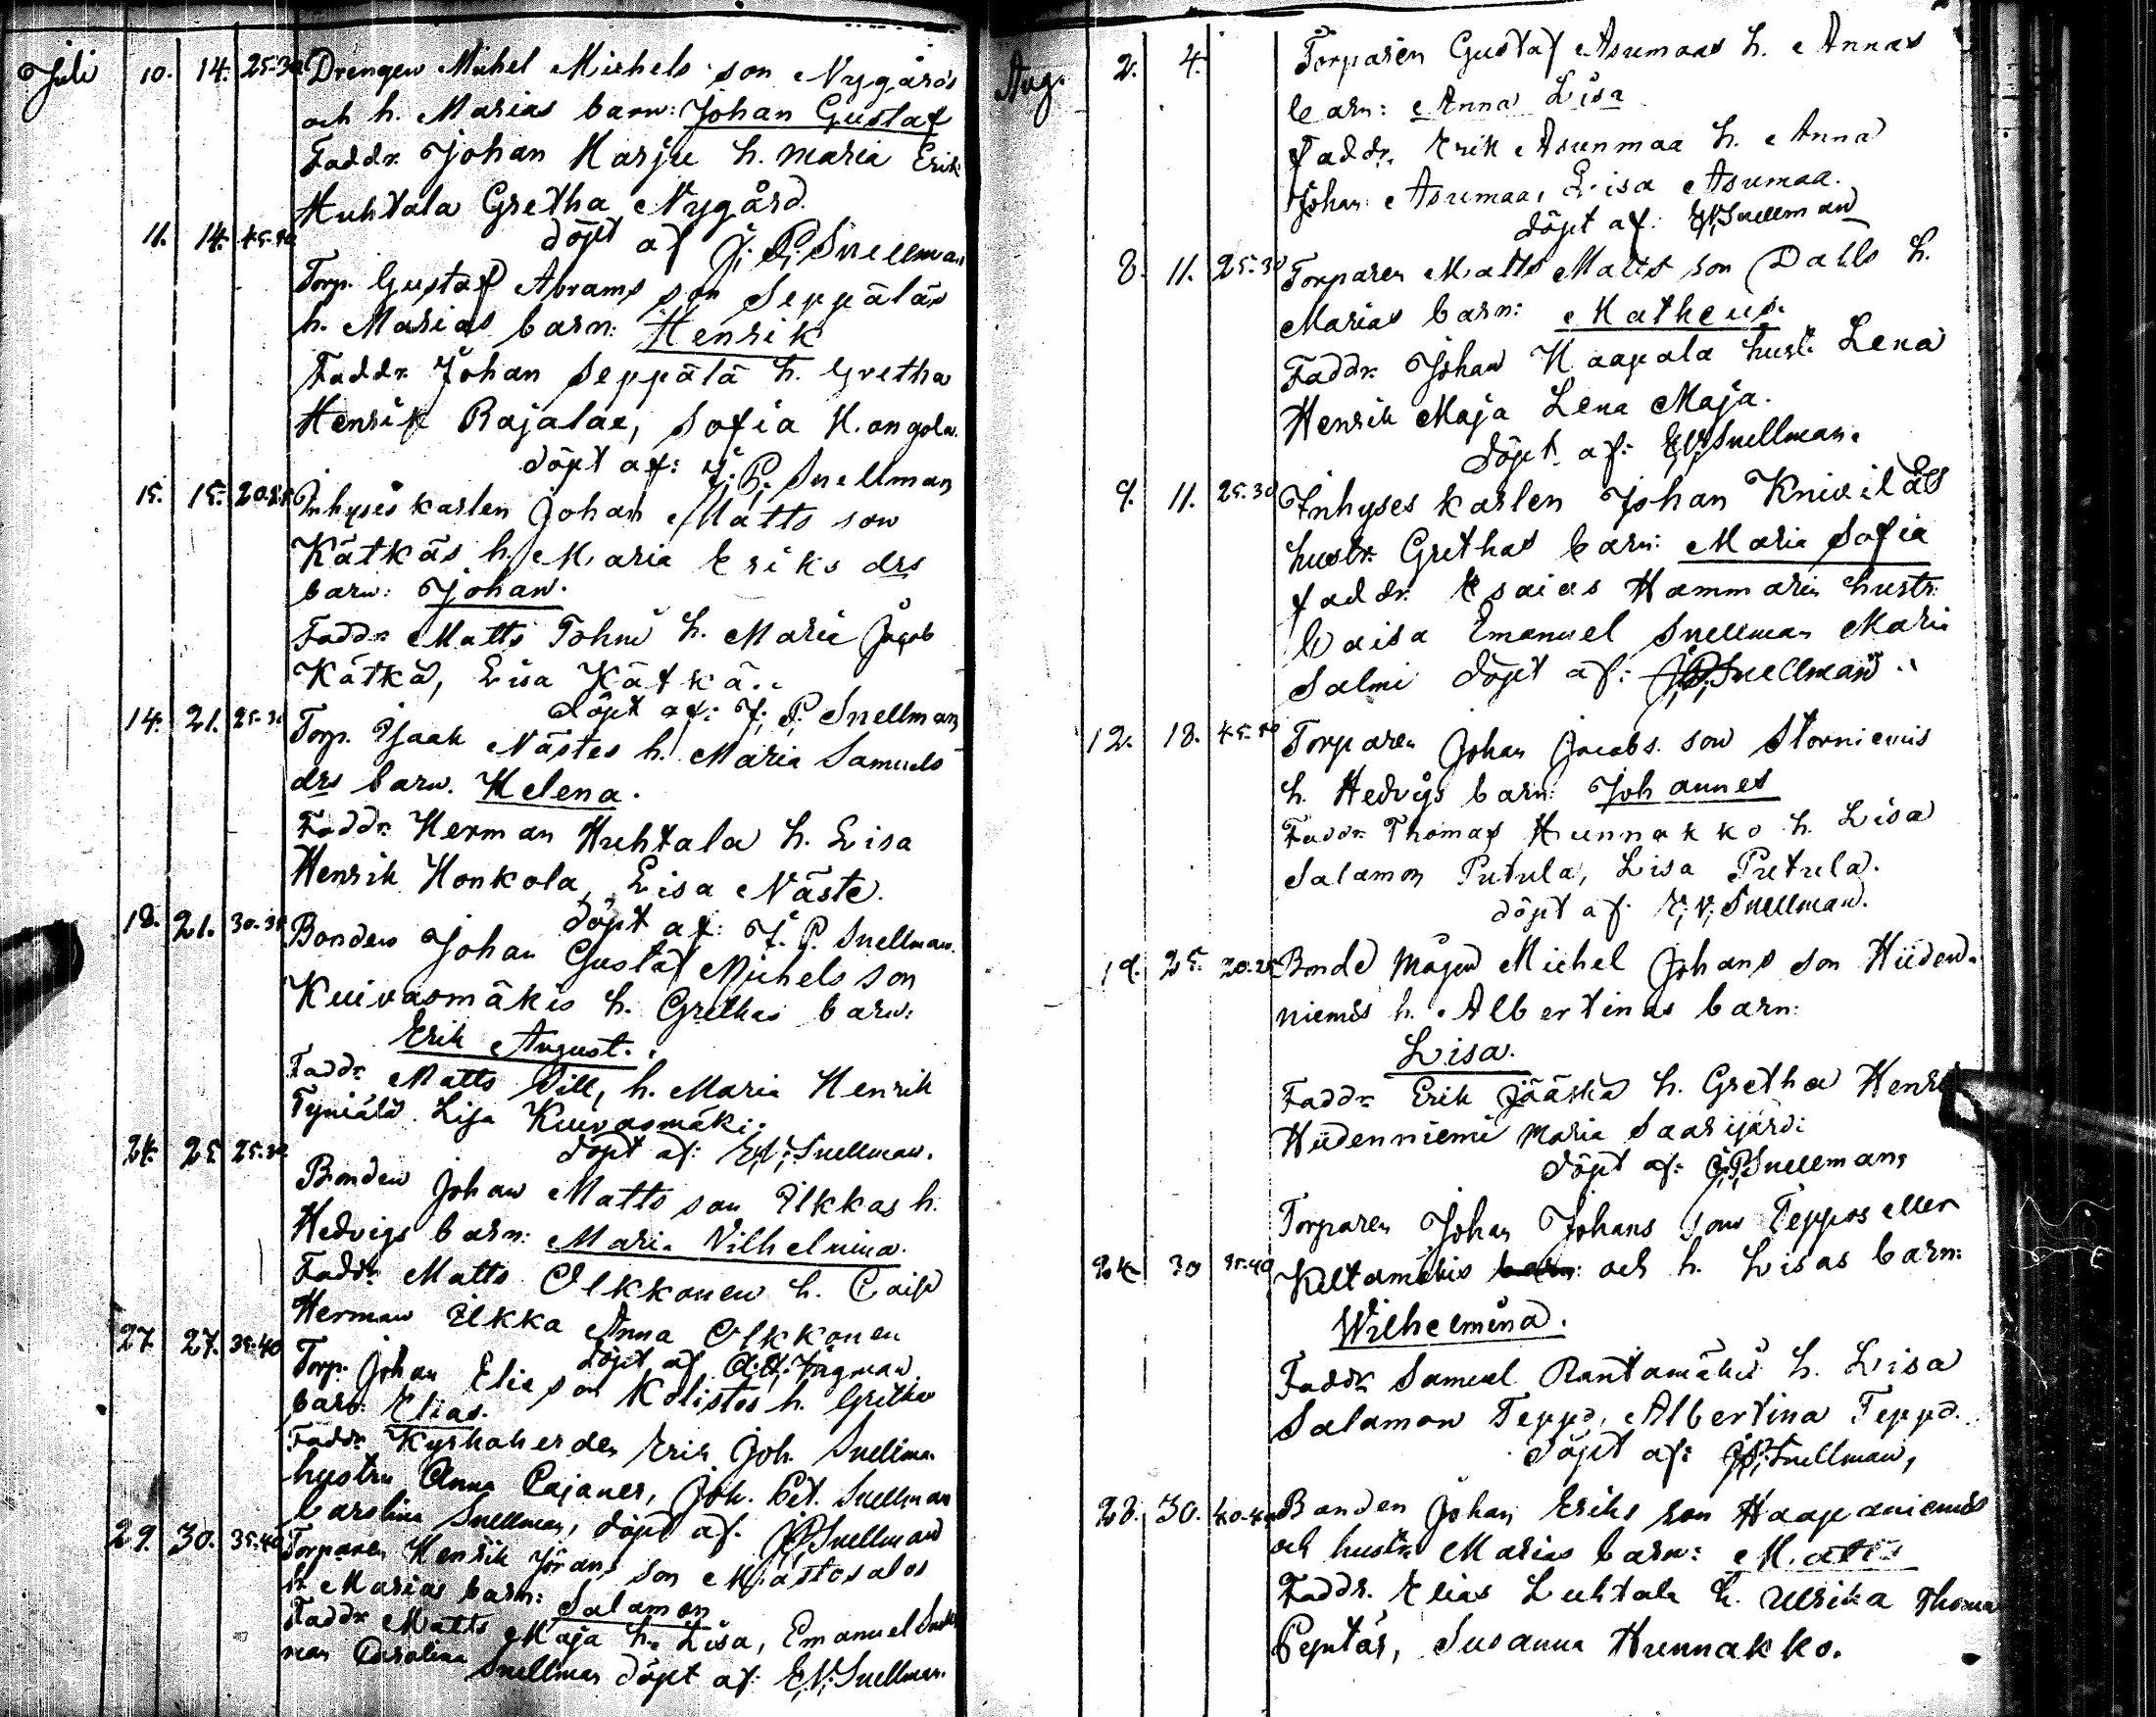 Juli 10. 14. 25-30 Drengen Michel Michels son Nygårds
och h. Marias barn: Johan Gustaf
Faddr. Johan Harju h. Maria Erik
Huhtala Gretha Nygård.
döpt af J. P. Snellman
11. 14. 45-50
Torp. Gustaf Abrams son Seppäläs
h. Marias barn: Henrik
Faddr. Johan Seppälä h. Gretha
Henrik Rajalae, Sofia
döpt af: J. P. Snellman
15. 15. 20-25 Inhyses karlen Johan Matts son
Kätkäs h. Maria Eriks drs
barn: Johan.
Faddr. Matts h. Maria Jacob
Kätkä, Lisa Kätkä.
döpt af: J. P. Snellman
14. 21. 25-30 Torp. Isaak Nästes h. Maria Samuels
drs barn. Helena.
Faddr. Herman Huhtala h. Lisa
Henrik Honkola, Lisa Näste.
döpt af: J. P. Snellman.
18. 21. 30-35 Bonden Johan Gustaf Michels son
Kuivasmäkis h. Grethas barn:
Erik August.
Faddr. Matts Vill, h. Maria Henrik
Lisa Kuivasmäki.
döpt af: E. V. Snellman.
24. 25. 25-30
Bonden Johan Matts son Ilkkas h.
Hedvigs barn: Maria Vilhelmina.
Faddr. Matts Olkkonen h. Caisa
Herman Ilkka Anna Olkkonen
döpt af Ingman
27. 27. 35-40 Torp. Johan Elie son Kolistos h. Gretha
barn: Elias.
Faddr. Kyrkoherden Erik Joh. Snellman
hustru Anna Cajaner, Joh. Pet. Snellman
Carolina Snellman, döpt af. J. P. Snellman
29. 30. 35-40 Torparen Henrik Jörans son Mästosalos
h. Marias barn: Salamon
Faddr. Matts Maja h. Lisa, Emanuel Snell
man Carolina Snellman döpt af: E. V. Snellman.
Aug. 2. 4. Torparen Gustaf Asumaas h. Annas
barn: Anna Lisa
Faddr. Erik Asunmaa h. Anna
Johan Asumaa, Lisa Asumaa.
döpt af: E. V. Snellman
8. 11. 25-30 Torparen Matts Matts son Dahls h.
Marias barn: Matheus.
Faddr. Johan Haapala hust. Lena
Henrik Maja Lena Maja.
döpt af: E. V. Snellman.
9. 11. 25-30 Inhyses karlen Johan Kniviläs
hustr. Grethas barn: Maria Sofia
faddr. Esaias Hammarin hustr.
Caisa Emanuel Snellman Maria
Salmi döpt af: J. P. Snellman
12. 18. 45-50 Torparen Johan Jacobs son Storniemis
h. Hedvigs barn: Johannes
Faddr. Thomas Hunnakko h. Lisa
Salamon Putula, Lisa Putula.
döpt af. E. V. Snellman.
19. 25. 20-25 Bonde mågen Michel Johans son Hiiden-
niemis h. Albertinas barn:
Lisa.
Faddr. Erik Jääskä h. Gretha Henrik
Hiidenniemi Maria Saarijärvi
döpt af: J. P. Snellman,
Torparen Johan Johans son Teppos eller
24. 30 35-40 Keltamäkis barn: och h. Lisas barn:
Wilhelmina.
Faddr. Samuel Rantamäki h. Lisa
Salamon Teppo, Albertina Teppo.
döpt af: J. P. Snellman,
28. 30. 40-45 Bonden Johan Eriks son Haapaniemis
och hustr. Marias barn: Matts
Faddr. Elias Luhtala h. Ulrika Thomas
Susanna Hunnakko.